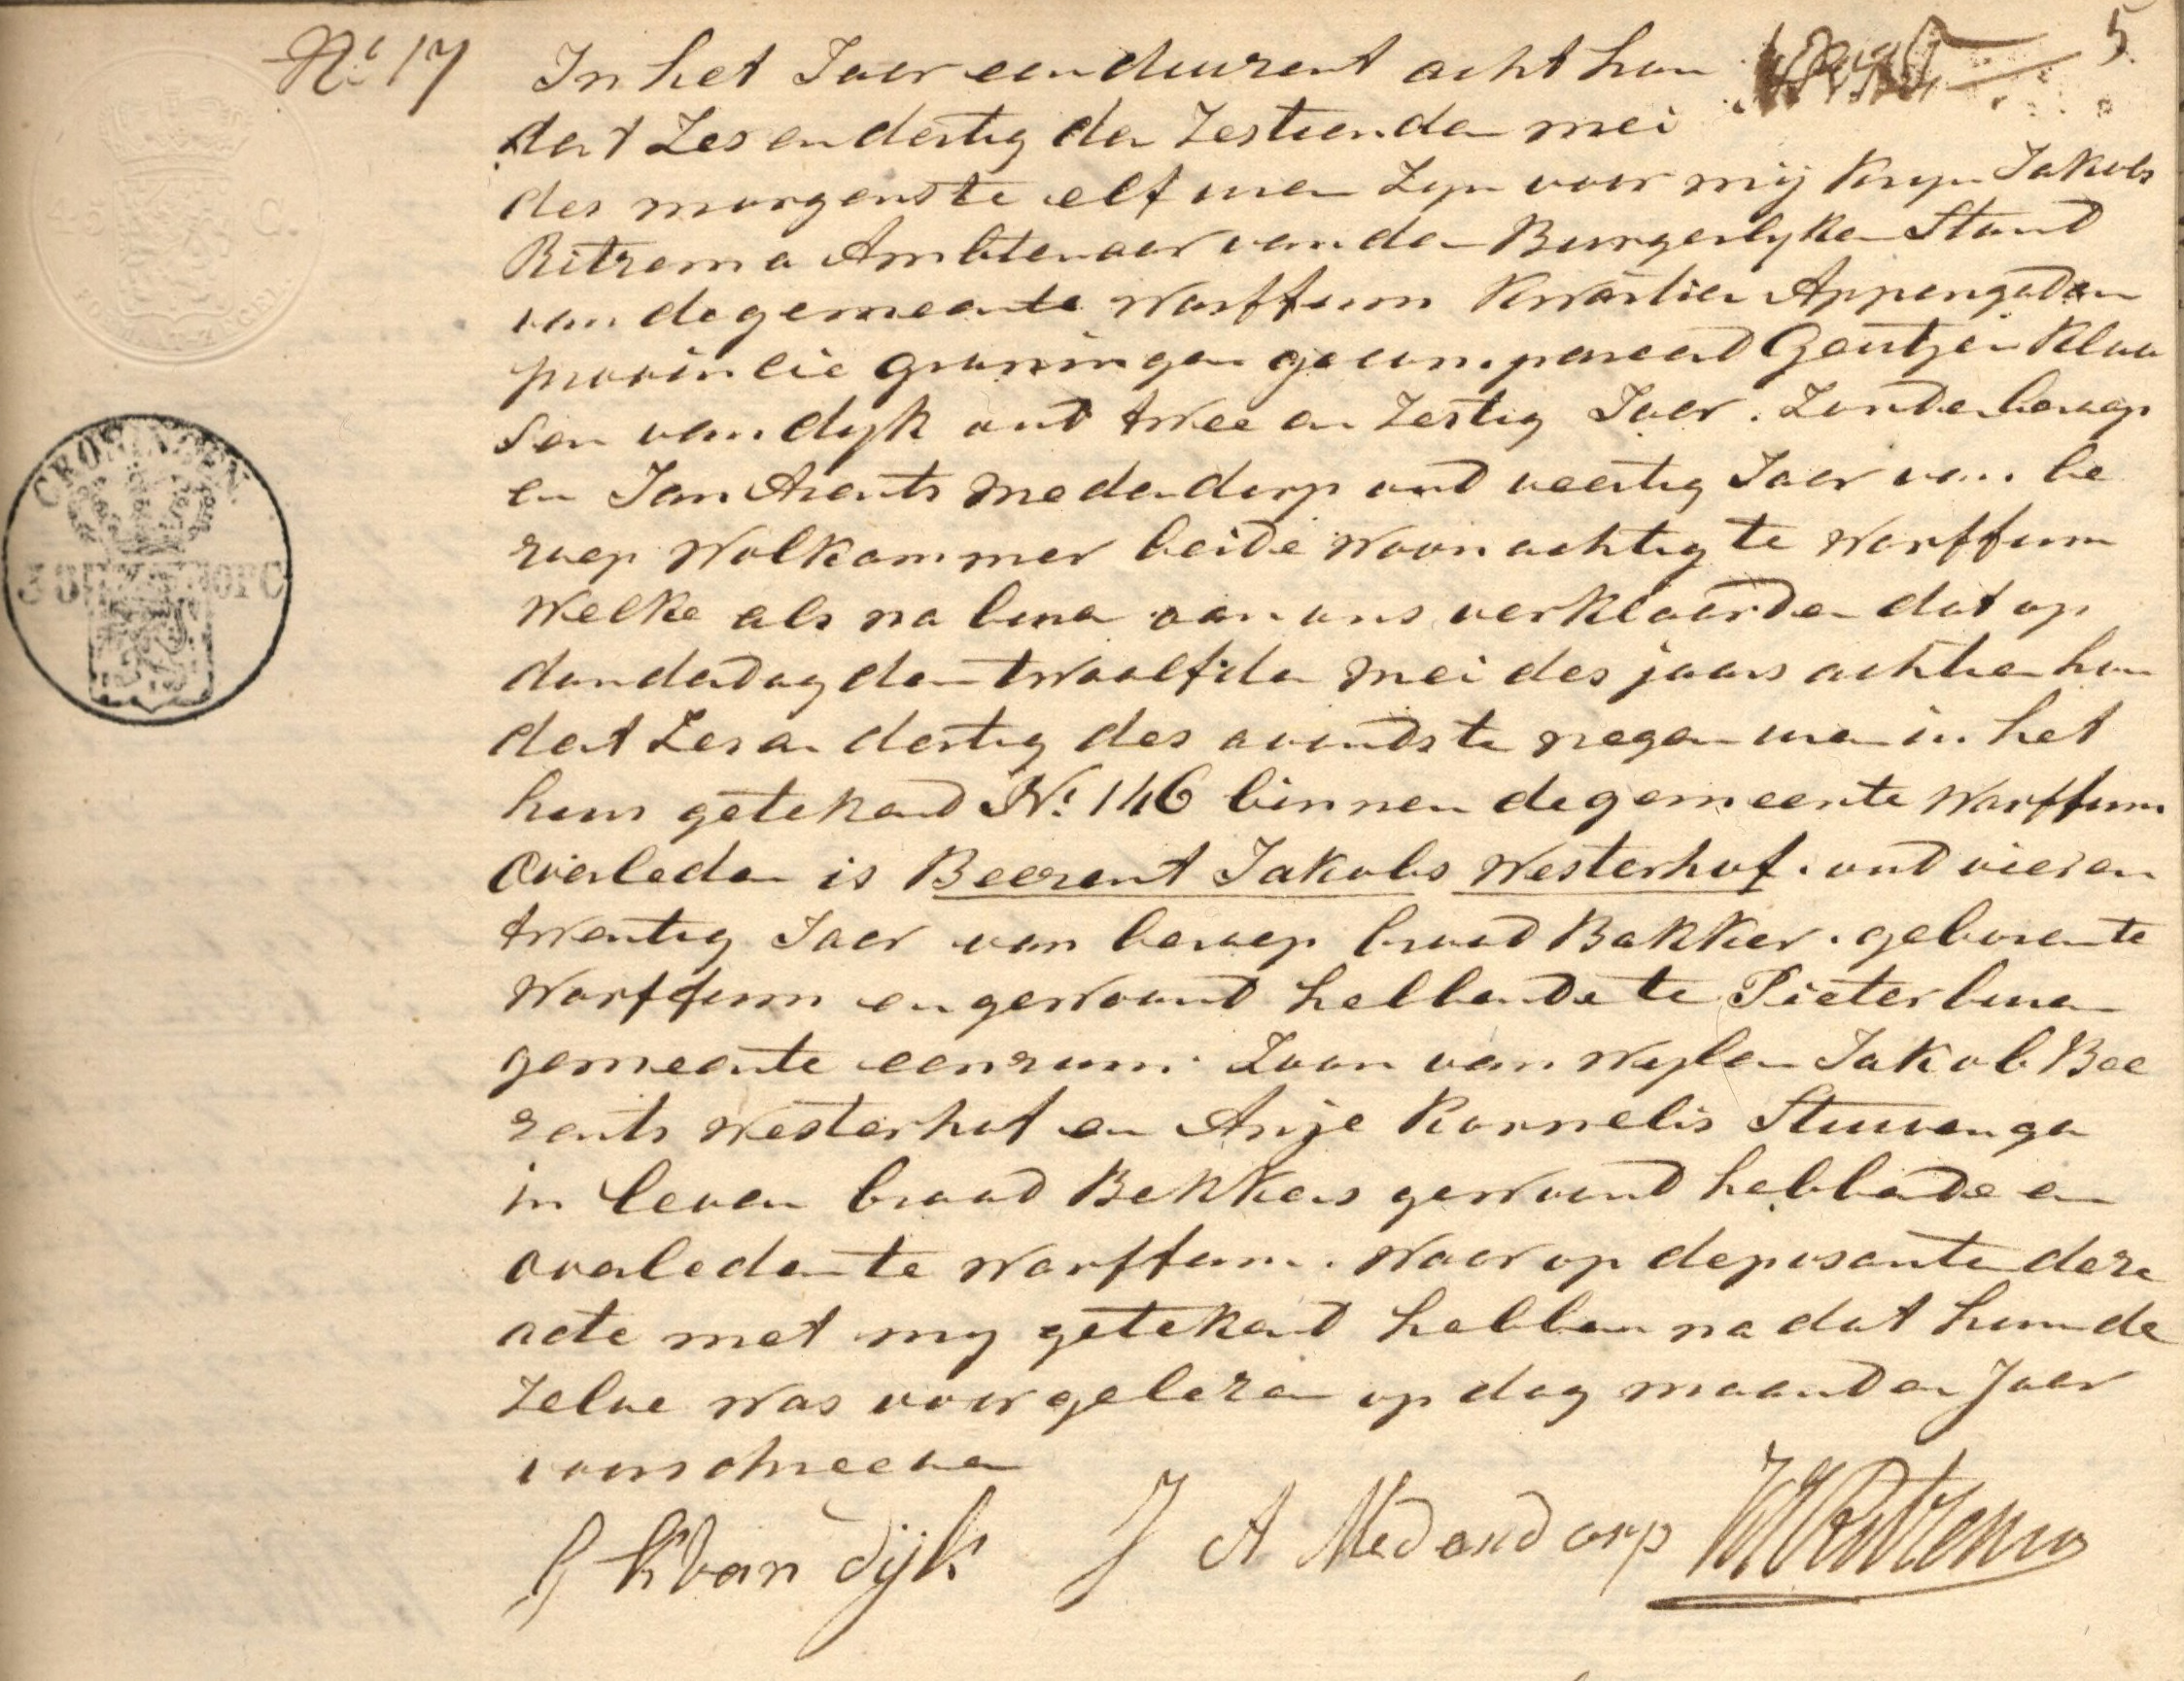 No 17
5
In het Jaar eenduizent acht hon
dert Zes en dertig den Zestienden mei
des morgens te elf uren Zyn voor mij Kryn Jakobs
Ritzema Ambtenaar van den Burgerlyken Stand
van de gemeente Warffum Kwartier Appengedam
provincie groningen gecompareerd Geutjen Klaa
sen van dyk oud twee en Zestig Jaar. Zonder beroep
en Jan Arents Medendorp oud veertig Jaar van be
roep Wolkammer beide Woonachtig te Warffum
Welke als na buren aan ons verklaarden dat op
donderdag den twaalfden Mei des jaars achtien hon
dert Zes en dertig des avonds te negen uren in het
huis getekend No. 146 binnen de gemeente Warffum
Overleden is Beerent Jakobs Westerhof. oud vier en
twentig Jaar van beroep brood Bakker. geboren te
Warffum en gewoond hebbende te Pieterburen
gemeente eenrum. Zoon van Wylen Jakob Bee
rents Westerhof en Anje Kornelis Stuivenga
in leven brood Bekkers gewoond hebbende en
overleden te Warffum. Waar op deposanten deze
acte met my getekend hebben na dat hun de
Zelve Was voorgelezen op dag maand en Jaar
voorschreeven
G K Van Dijk
J A Medendorp
K J Ritzema
GRONINGEN